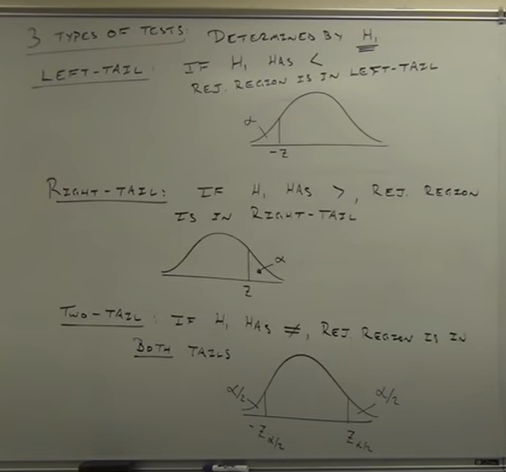 3 TYPES OF TESTS: DETERMINED BY H₁
LEFT-TAIL: IF H₁ HAS <
REJ. REGION IS IN LEFT-TAIL
α
-Z
RIGHT-TAIL: IF H₁ HAS >, REJ. REGION
IS IN RIGHT-TAIL
α
Z
TWO-TAIL: IF H₁ HAS ≠, REJ. REGION IS IN
BOTH TAILS
α/2 α/2
-Z α/2 Z α/2